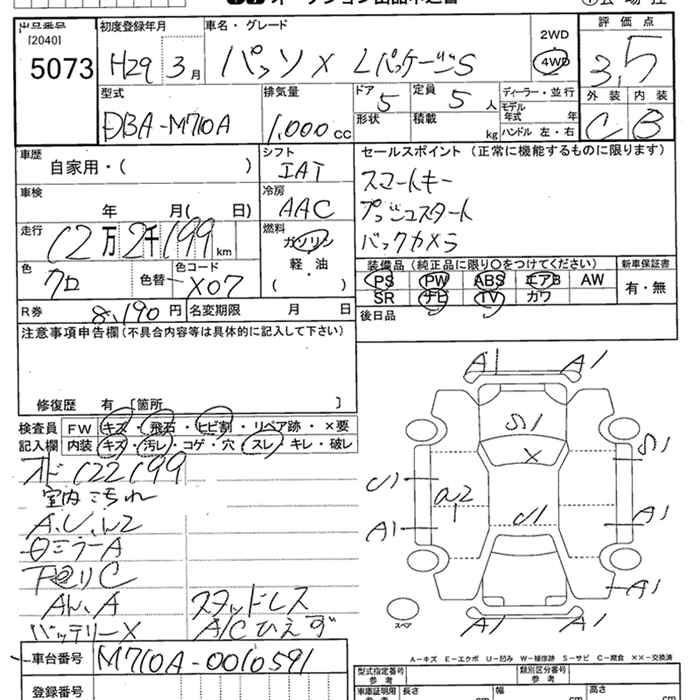 出品番号 初度登録年月 車名・グレード 2WD 評価点
[2040] H29 3月 パッソ X Lパッケージ S 4WD 3,5
5073
型式 排気量 ドア 5 定員 5人 ディーラー・並行 外装 内装
DBA-M710A 1,000cc 形状 積載 kg モデル年式 年 C B
ハンドル 左・右
車歴 シフト セールスポイント (正常に機能するものに限ります)
自家用・( ) IAT スマートキー
車検 冷房 プッシュスタート
年 月( 日) AAC バックカメラ
走行 燃料
12万2千199km ガソリン
軽・油
( )
装備品 (純正品に限り○をつけてください) 新車保証書
色 色替 色コード PS PW ABS エアB AW 有・無
クロ X07 SR ナビ TV カワ
R券 8,190円 名変期限 月 日 後日品
注意事項申告欄(不具合内容等は具体的に記入して下さい)
修復歴 有 [箇所 ]
検査員 FW キズ・飛石・ヒビ割・リペア跡・×要
記入欄 内装 キズ・汚レ・コゲ・穴・スレ・キレ・破レ
122199
室内 汚れ
A.U.W2
ミラーA
下回りC
A スタッドレス
バッテリーX A/Cひえず
A1 A1
S1
X
S1
U1
a2
1
A1 A1
A1
A1 A1
スペア
A-キズ E-エクボ U-凹み W-補修跡 S-サビ C-腐食 ××-交換済
車台番号 M710A-0010591
型式指定番号 参考 類別区分番号 参考
登録番号 車庫証明用 参考 長さ cm 幅 cm 高さ cm